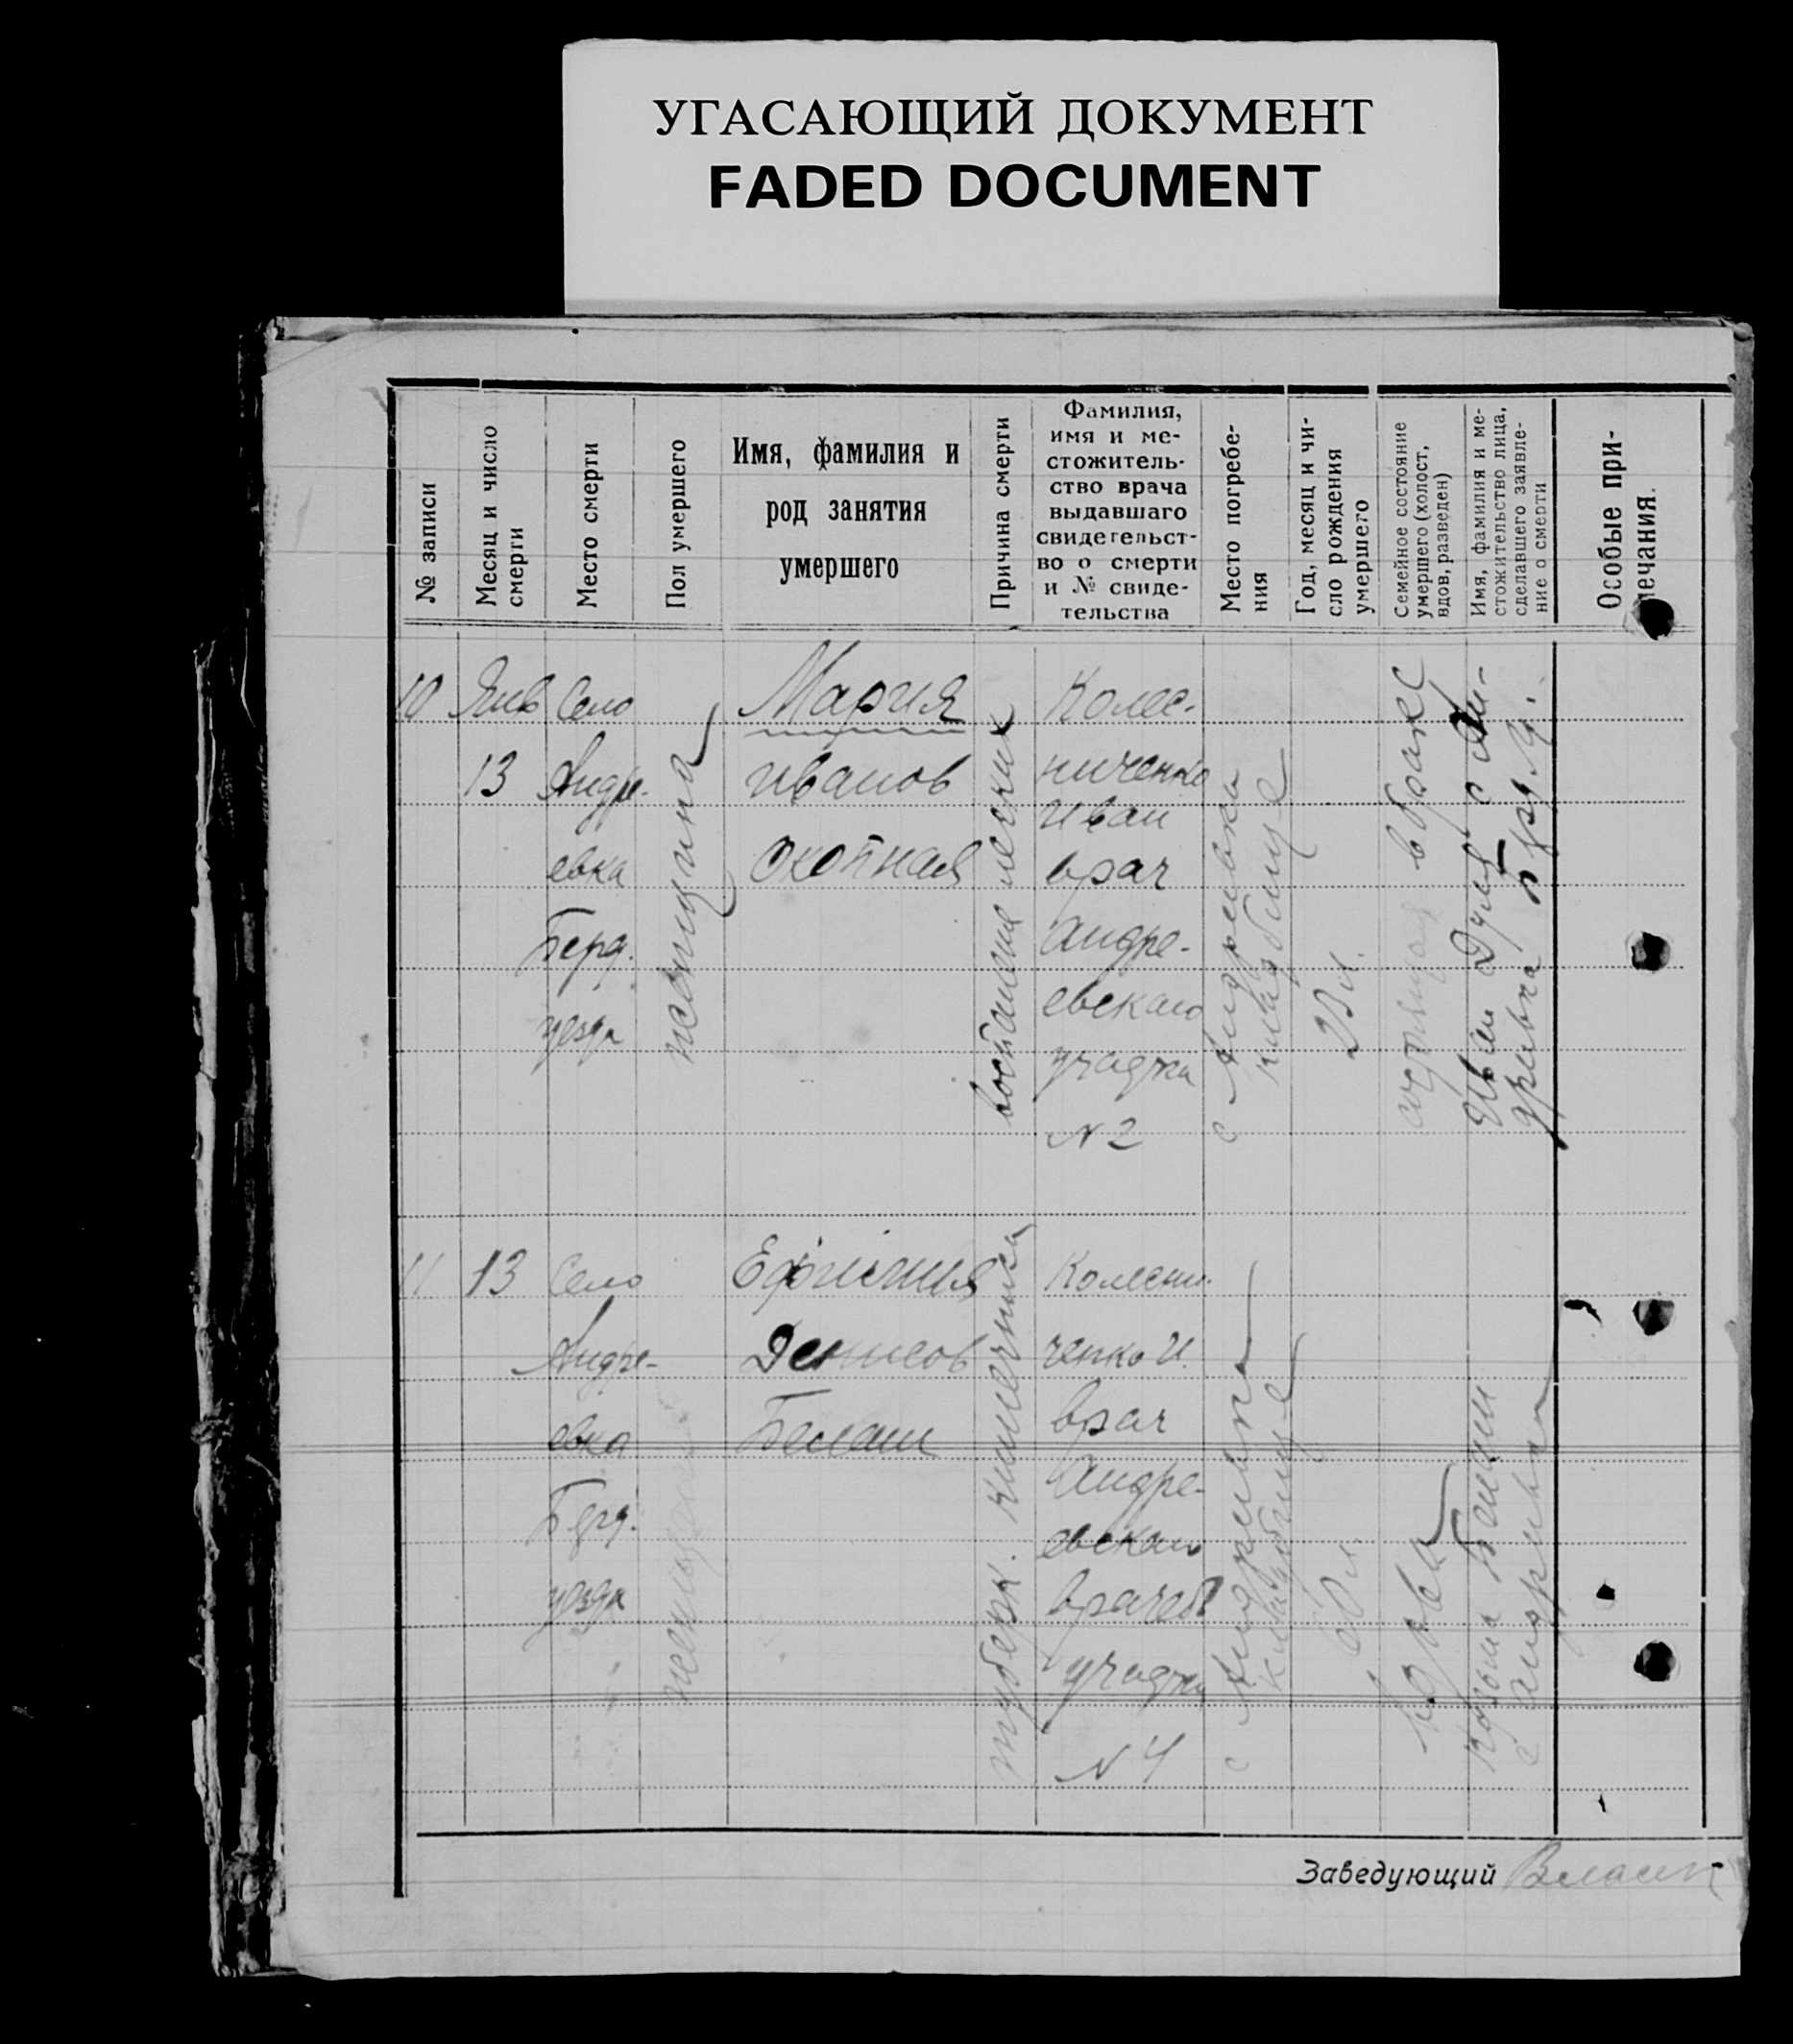 УГАСАЮЩИЙ ДОКУМЕНТ
FADED DOCUMENT
№ записи
Месяц и число
смерти
Место смерти
Пол умершего
Имя, фамилия и
род занятия
умершего
Причина смерти
Фамилия,
имя и ме-
стожитель-
ство врача
выдавшаго
свидетельст-
во о смерти
и № свиде-
тельства
Место погребе-
ния
Год, месяц и чи-
сло рождения
умершего
Семейное состояние
умершего (холост,
вдов, разведен)
Имя, фамилия и ме-
стожительство лица,
сделавшего заявле-
ние о смерти
Особые при-
мечания.
10
Янв
13
Село
Андре-
евка
Берд.
уезда
женщина
Мария
Иванов
Охотная
воспаление легких
Колес-
ниченко
Иван
врач
Андре-
евского
участка
N 2
с Андреевка
кладбище
состоящая в браке
Иван
11
13
Село
Андре-
евка
Берд.
уезда
женщина
Ефимия
Денисов
Белаш
туберк. кишечника
Колесни-
ченко И.
врач
Андре-
евского
врачеб
участка
N 4
с Андреевка
кладбище
вдова
Белаш
с Андреевка
Заведующий